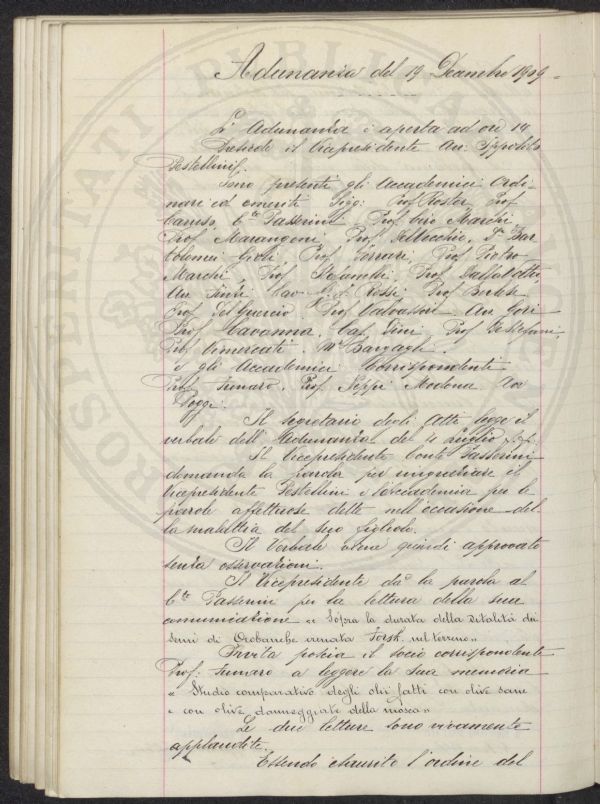 Adunanza del 19 Dicembre 1909 =
L'Adunanza è aperta ad ore 14
Presiede il Vicepresidente Avv. Ippolito
Pestellini.
Sono presenti gli Accademici Ordi-
nari ed emeriti Sigg: Prof. Roster, Prof.
Caruso, C.te Passerini, Prof. Ciro Marchi,
Prof. Marangoni, Prof. Del Vecchio, D.r Bar
tolomei Gioli, Prof. Ferrari, Prof. Pietro
Marchi, Prof. Stefanelli, Prof. Dalla Volta,
Avv. Cav. Rossi, Prof. Berlese
Prof. Del Guercio, Prof. Valvassori, Avv. Gori
Prof. Cavanna, Cav. Pucci, Prof. De Stefani,
Prof. Vimercati, M.se Bargagli.
e gli Accademici Corrispondenti
Prof. Fumaro, Prof. Peppi, Modona,
Poggi.
Il segretario degli Atti legge il
verbale dell'Adunanza del 4 Luglio p.p.
Il Vicepresidente Conte Passerini
domanda la parola per ringraziare il
Vicepresidente Pestellini e l'Accademia per le
parole affettuose dette nell'occasione del
la malattia del suo figliolo.
Il Verbale viene quindi approvato
senza osservazioni.
Il Vicepresidente dà la parola al
C.te Passerini per la lettura della sua
comunicazione « Sopra la durata della vitalità dei
semi di Orobanche crenata Forsk. nel terreno »
Invita poscia il socio corrispondente
Prof: Fumaro a leggere la sua memoria
« Studio comparativo degli olii fatti con olive sane
e con olive danneggiate dalla mosca »
Le due letture sono vivamente
applaudite.
Essendo esaurito l'ordine del